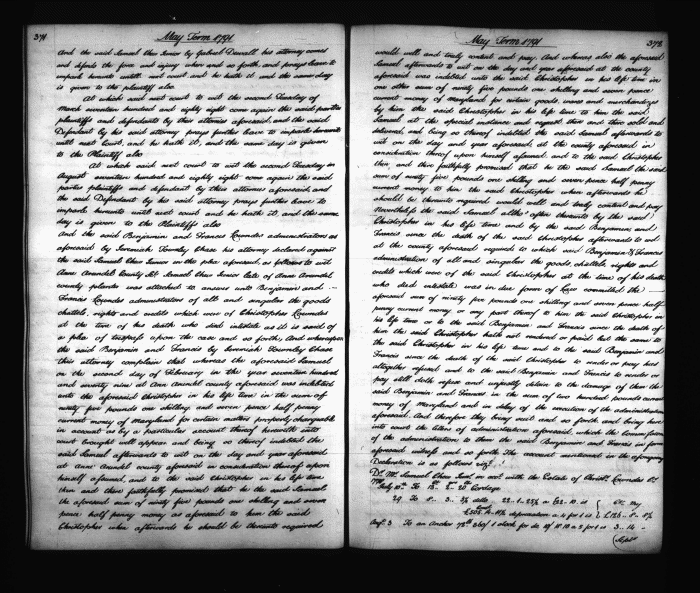 371
May Term 1791
And the said Samuel Chew Junior by Gabriel Duvall his attorney comes
and defends the force and injury when and so forth and prays leave to
imparle hereunto until next court and he hath it and the same day
is given to the plaintiff also
At which said next court to wit the second Tuesday of
March seventeen hundred and eighty eight come again the said parties
plaintiffs and defendant by their attornies aforesaid, and the said
Defendant by his said attorney prays further leave to imparle hereunto
until next Court, and he hath it, and the same day is given
to the Plaintiff also
At which said next court to wit the second Tuesday in
August seventeen hundred and eighty eight come again the said
parties plaintiffs and defendant by their attornies aforesaid and
the said Defendant by his said attorney prays further leave to
imparle hereunto until next court and he hath it, and the same
day is given to the Plaintiff also
And the said Benjamin and Francis Lowndes administrators as
aforesaid by Jeremiah Townley Chase his attorney declares against
the said Samuel Chew Junior in the plea aforesaid, as follows to wit
Anne Arundel County Sct Samuel Chew Junior late of Anne Arundel
county planter was attached to answer unto Benjamin and
Francis Lowndes administrators of all and singular the goods
chattels, rights and credits which were of Christopher Lowndes
at the time of his death who died intestate as it is said of
a plea of trespass upon the case and so forth, And whereupon
the said Benjamin and Francis by Jeremiah Townley Chase
their attorney complain that whereas the aforesaid Samuel
on the second day of February in the year seventeen hundred
and seventy nine at Ann Arundel county aforesaid was indebted
unto the aforesaid Christopher in his life time in the sum of
ninety five pounds one shilling and seven pence half penny
current money of Maryland for certain matters properly chargeable
in account as by a particular account thereof herewith into
court brought will appear and being so thereof indebted the
said Samuel afterwards to wit on the day and year aforesaid
at anne Arundel county aforesaid in consideration thereof upon
himself assumed, and to the said Christopher in his life time
then and there faithfully promised that he the said Samuel
the aforesaid sum of ninety five pounds one shilling and seven
pence half penny money as aforesaid to him the said
Christopher when afterwards he should be thereunto required
May Term 1791
372
would well and truly content and pay. And whereas also the aforesaid
Samuel afterwards to wit on the day and year aforesaid at the county
aforesaid was indebted unto the said Christopher in his life time in
one other sum of ninety five pounds one shilling and seven pence
current money of Maryland for certain goods, wares and merchandizes
by him the said Christopher in his life time to him the said
Samuel at the special instance and request of him then sold and
delivered, and being so thereof indebted the said Samuel afterwards to
wit on the day and year aforesaid at the county aforesaid in
consideration thereof upon himself assumed and to the said Christopher
then and there faithfully promised that he the said Samuel the said
sum of ninety five pounds one shilling and seven pence half penny
current money to him the said Christopher when afterwards he
should be thereunto required would well and truly content and pay
Nevertheless the said Samuel altho' often thereunto by the said
Christopher in his life time and by the said Benjamin and
Francis since the death of the said Christopher afterwards to wit
at the county aforesaid required to which said Benjamin & Francis
administration of all and singular the goods, chattels, rights and
credits which were of the said Christopher at the time of his death
who died intestate was in due form of Law committed the
aforesaid sum of ninety five pounds one shilling and seven pence half
penny current money or any part thereof to him the said Christopher in
his life time or to the said Benjamin and Francis since the death of
him the said Christopher hath not rendered or paid but the same to
the said Christopher in his life time and to the said Benjamin and
Francis since the death of the said Christopher to render or pay hath
altogether refused and to the said Benjamin and Francis to render or
pay still doth refuse and unjustly detain to the damage of them the
said Benjamin and Francis in the sum of two hundred pounds current
money of Maryland and in delay of the execution of the administration
aforesaid. And therefore they bring suit and so forth and bring here
into court the letters of administration aforesaid which the commission
of the administration to them the said Benjamin and Francis in form
aforesaid witness and so forth The account mentioned in the aforegoing
Declaration is as follows viz.
Dr. Mr Samuel Chew Junr. in acct with the Estate of Christr. Lowndes Cr.
Cordage
29 To
Augt. 3 To an Anchor
3 - 14 -